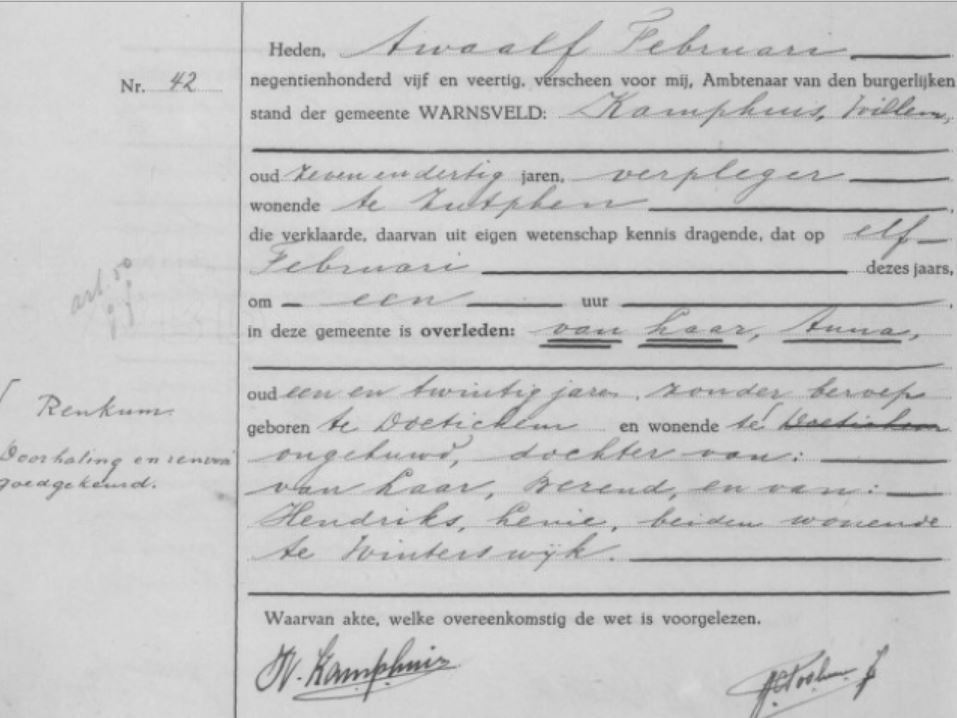 Nr. 42
Heden, twaalf Februari
negentienhonderd vijf en veertig, verscheen voor mij, Ambtenaar van den burgerlijken
stand der gemeente WARNSVELD: Kamphuis, Willem,
oud zeven en dertig jaren, verpleger
wonende te Zutphen,
die verklaarde, daarvan uit eigen wetenschap kennis dragende, dat op elf
Februari dezes jaars,
om een uur,
in deze gemeente is overleden: van Haar, Anna,
oud een en twintig jaren, zonder beroep
geboren te Doetichem en wonende te Doetichem
ongehuwd, dochter van:
van Haar, Berend, en van:
Hendriks, Henie, beiden wonende
te Winterswijk.
Waarvan akte, welke overeenkomstig de wet is voorgelezen.
W. Kamphuis
art. 50
Renkum
Doorhaling en renvooi
goedgekeurd.